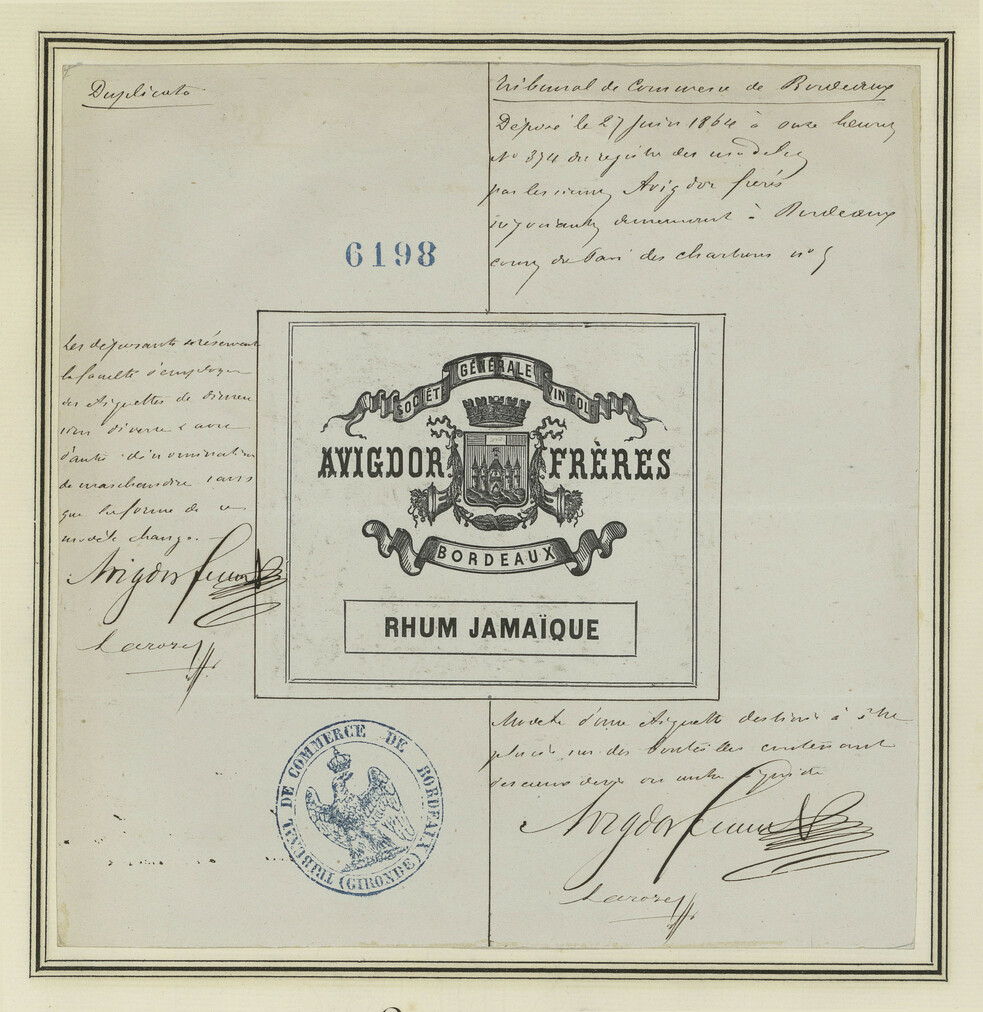 Duplicata
Tribunal de Commerce de Bordeaux
Déposé le 27 Juin 1864 à onze heures
No 374 du registre des modèles
par les sieurs Avigdor frères
négociants demeurant à Bordeaux
cours du Pavé des chartrons no 5
6198
Les déposants se réservent
la faculté d'employer
des étiquettes de dimen
sions diverses avec
d'autres dénominations
de marchandise sans
que la forme de ce
modèle change.
Avigdor frères
Larose
SOCIÉTÉ GÉNÉRALE VINICOLE
AVIGDOR FRÈRES
BORDEAUX
RHUM JAMAÏQUE
Modèle d'une étiquette destinée à être
placée sur des bouteilles contenant
des eaux de vie ou autre liquide
Avigdor frères
Larose
TRIBUNAL DE COMMERCE DE BORDEAUX
(GIRONDE)